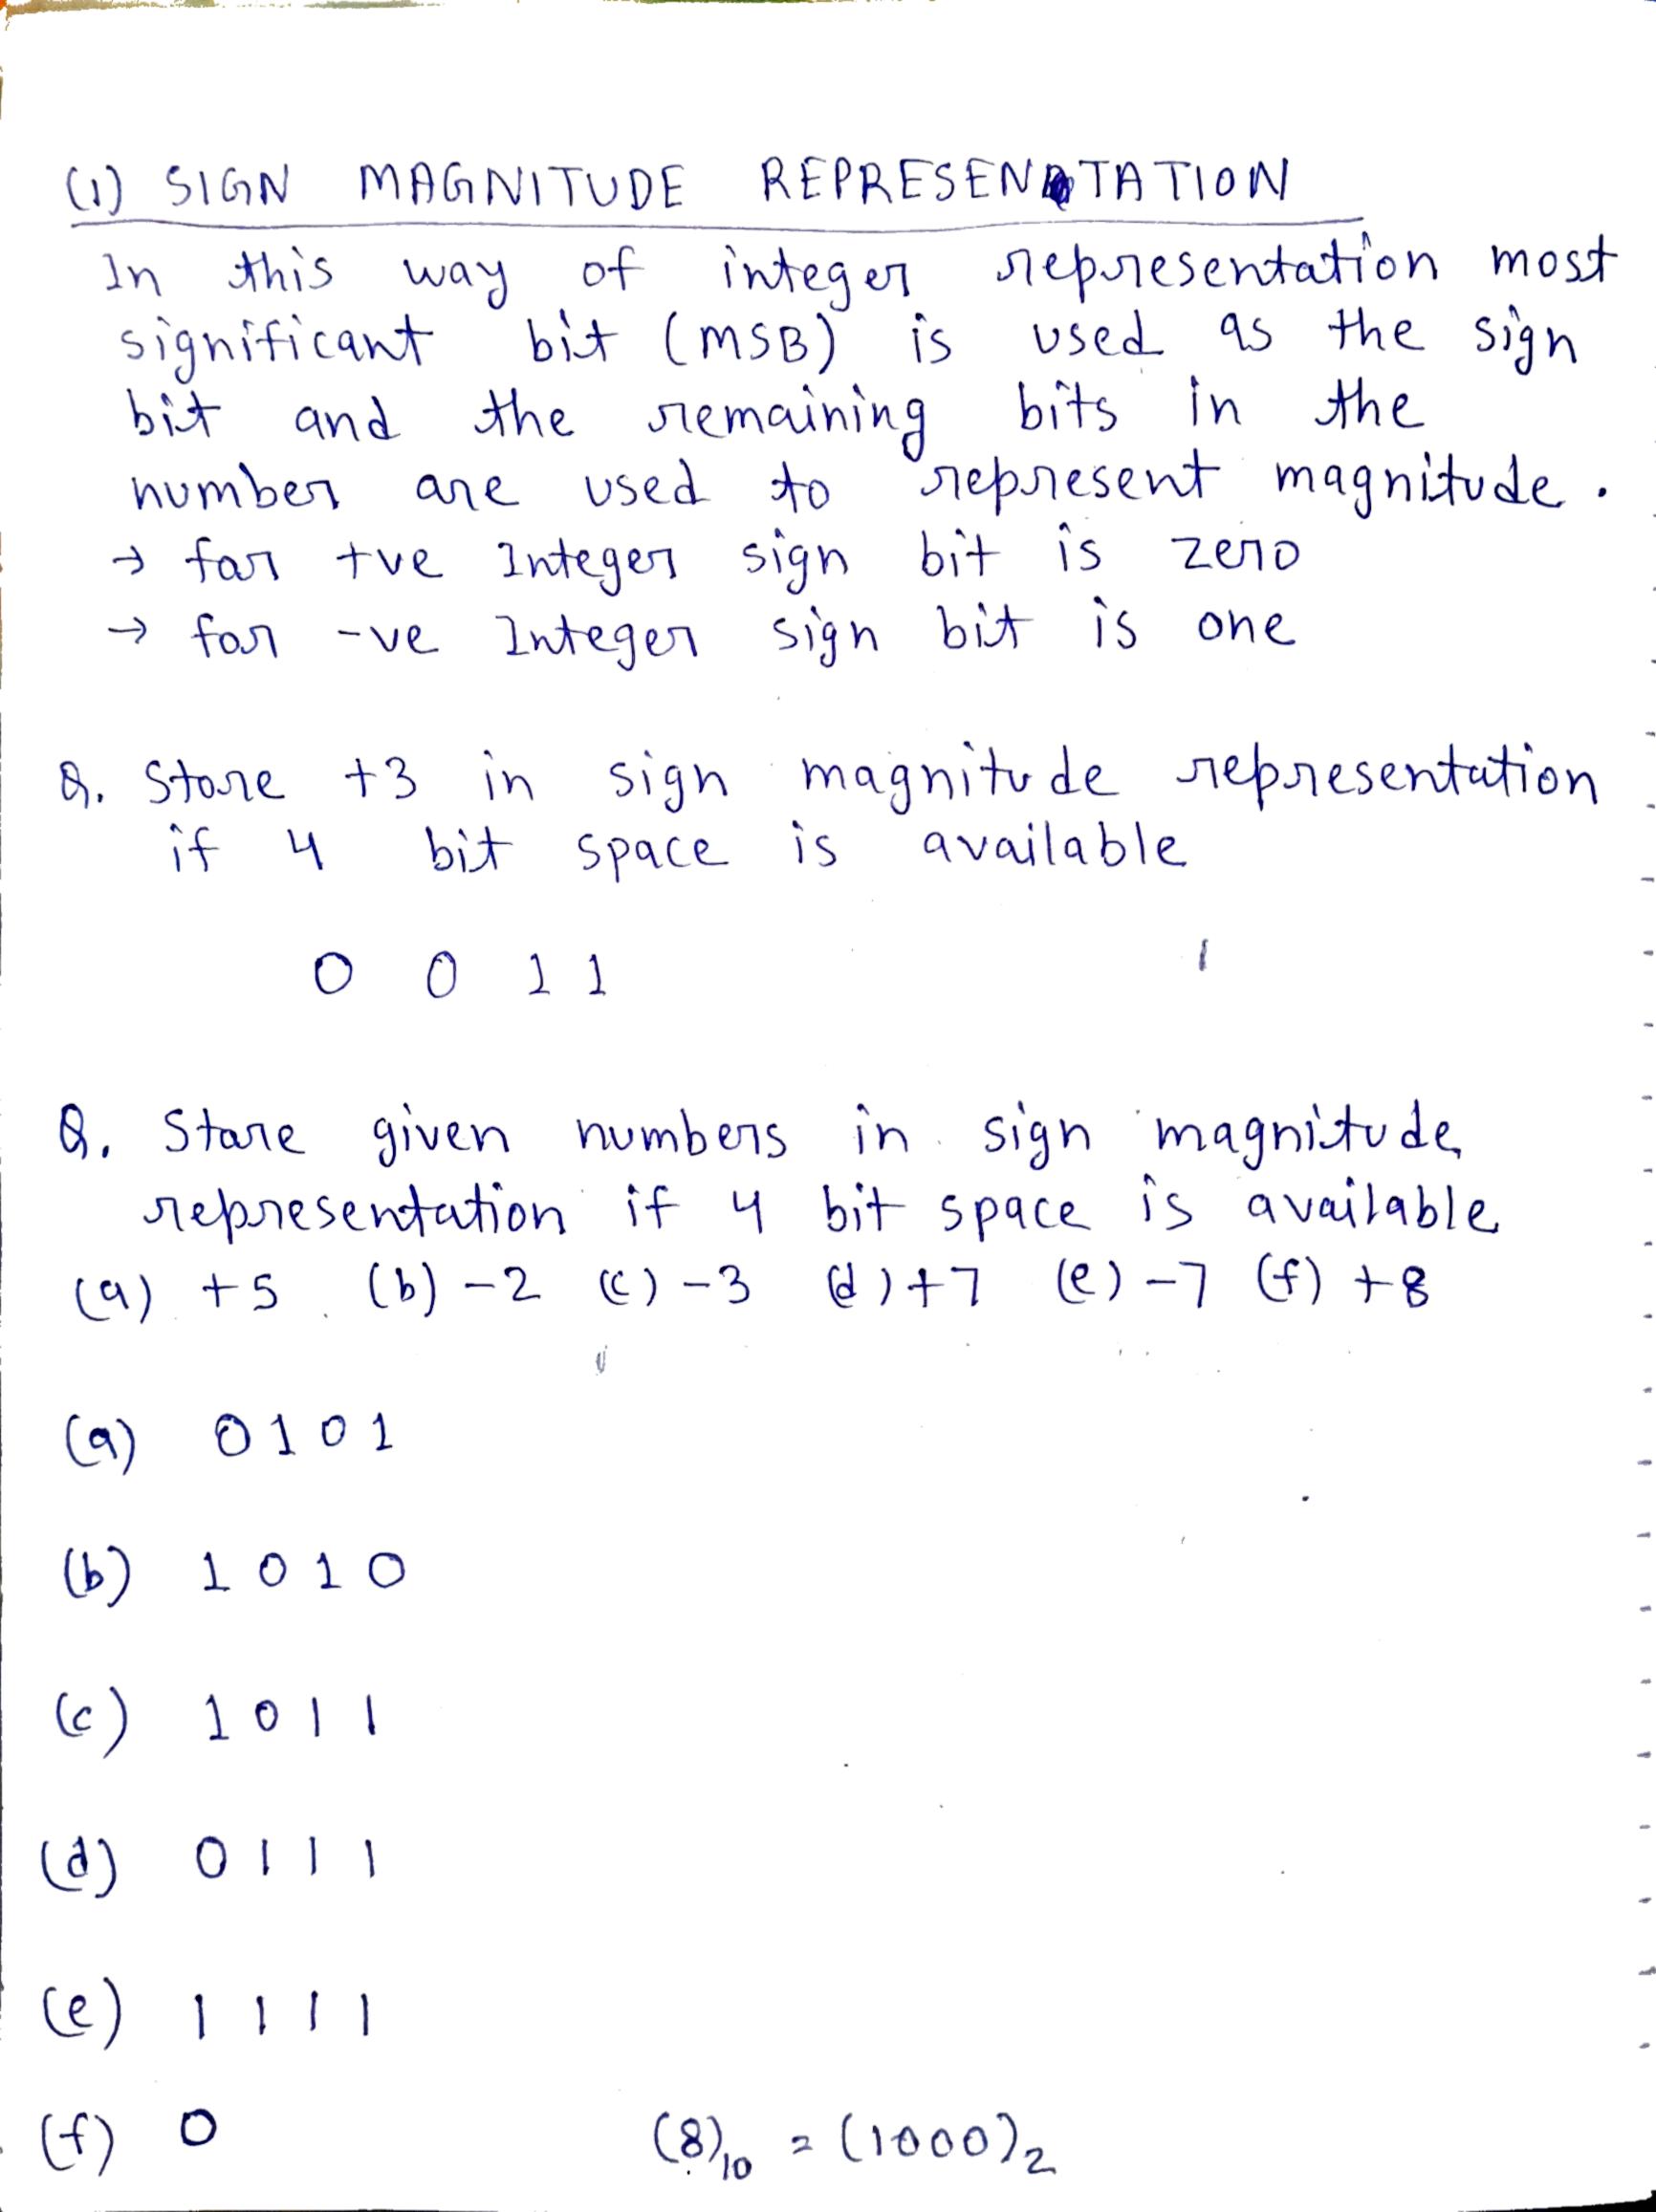 (1) SIGN MAGNITUDE REPRESENTATION
In this way of integer representation most
significant bit (MSB) is used as the sign
bit and the remaining bits in the
number are used to represent magnitude.
→ for +ve Integer sign bit is zero
→ for -ve Integer sign bit is one
Q. Store +3 in sign magnitude representation
if 4 bit space is available
0 0 1 1
Q. Store given numbers in sign magnitude
representation if 4 bit space is available
(a) +5 (b) -2 (c) -3 (d) +7 (e) -7 (f) +8
(a) 0101
(b) 1010
(c) 1011
(d) 0111
(e) 1111
(f) 0 (8)₁₀ = (1000)₂